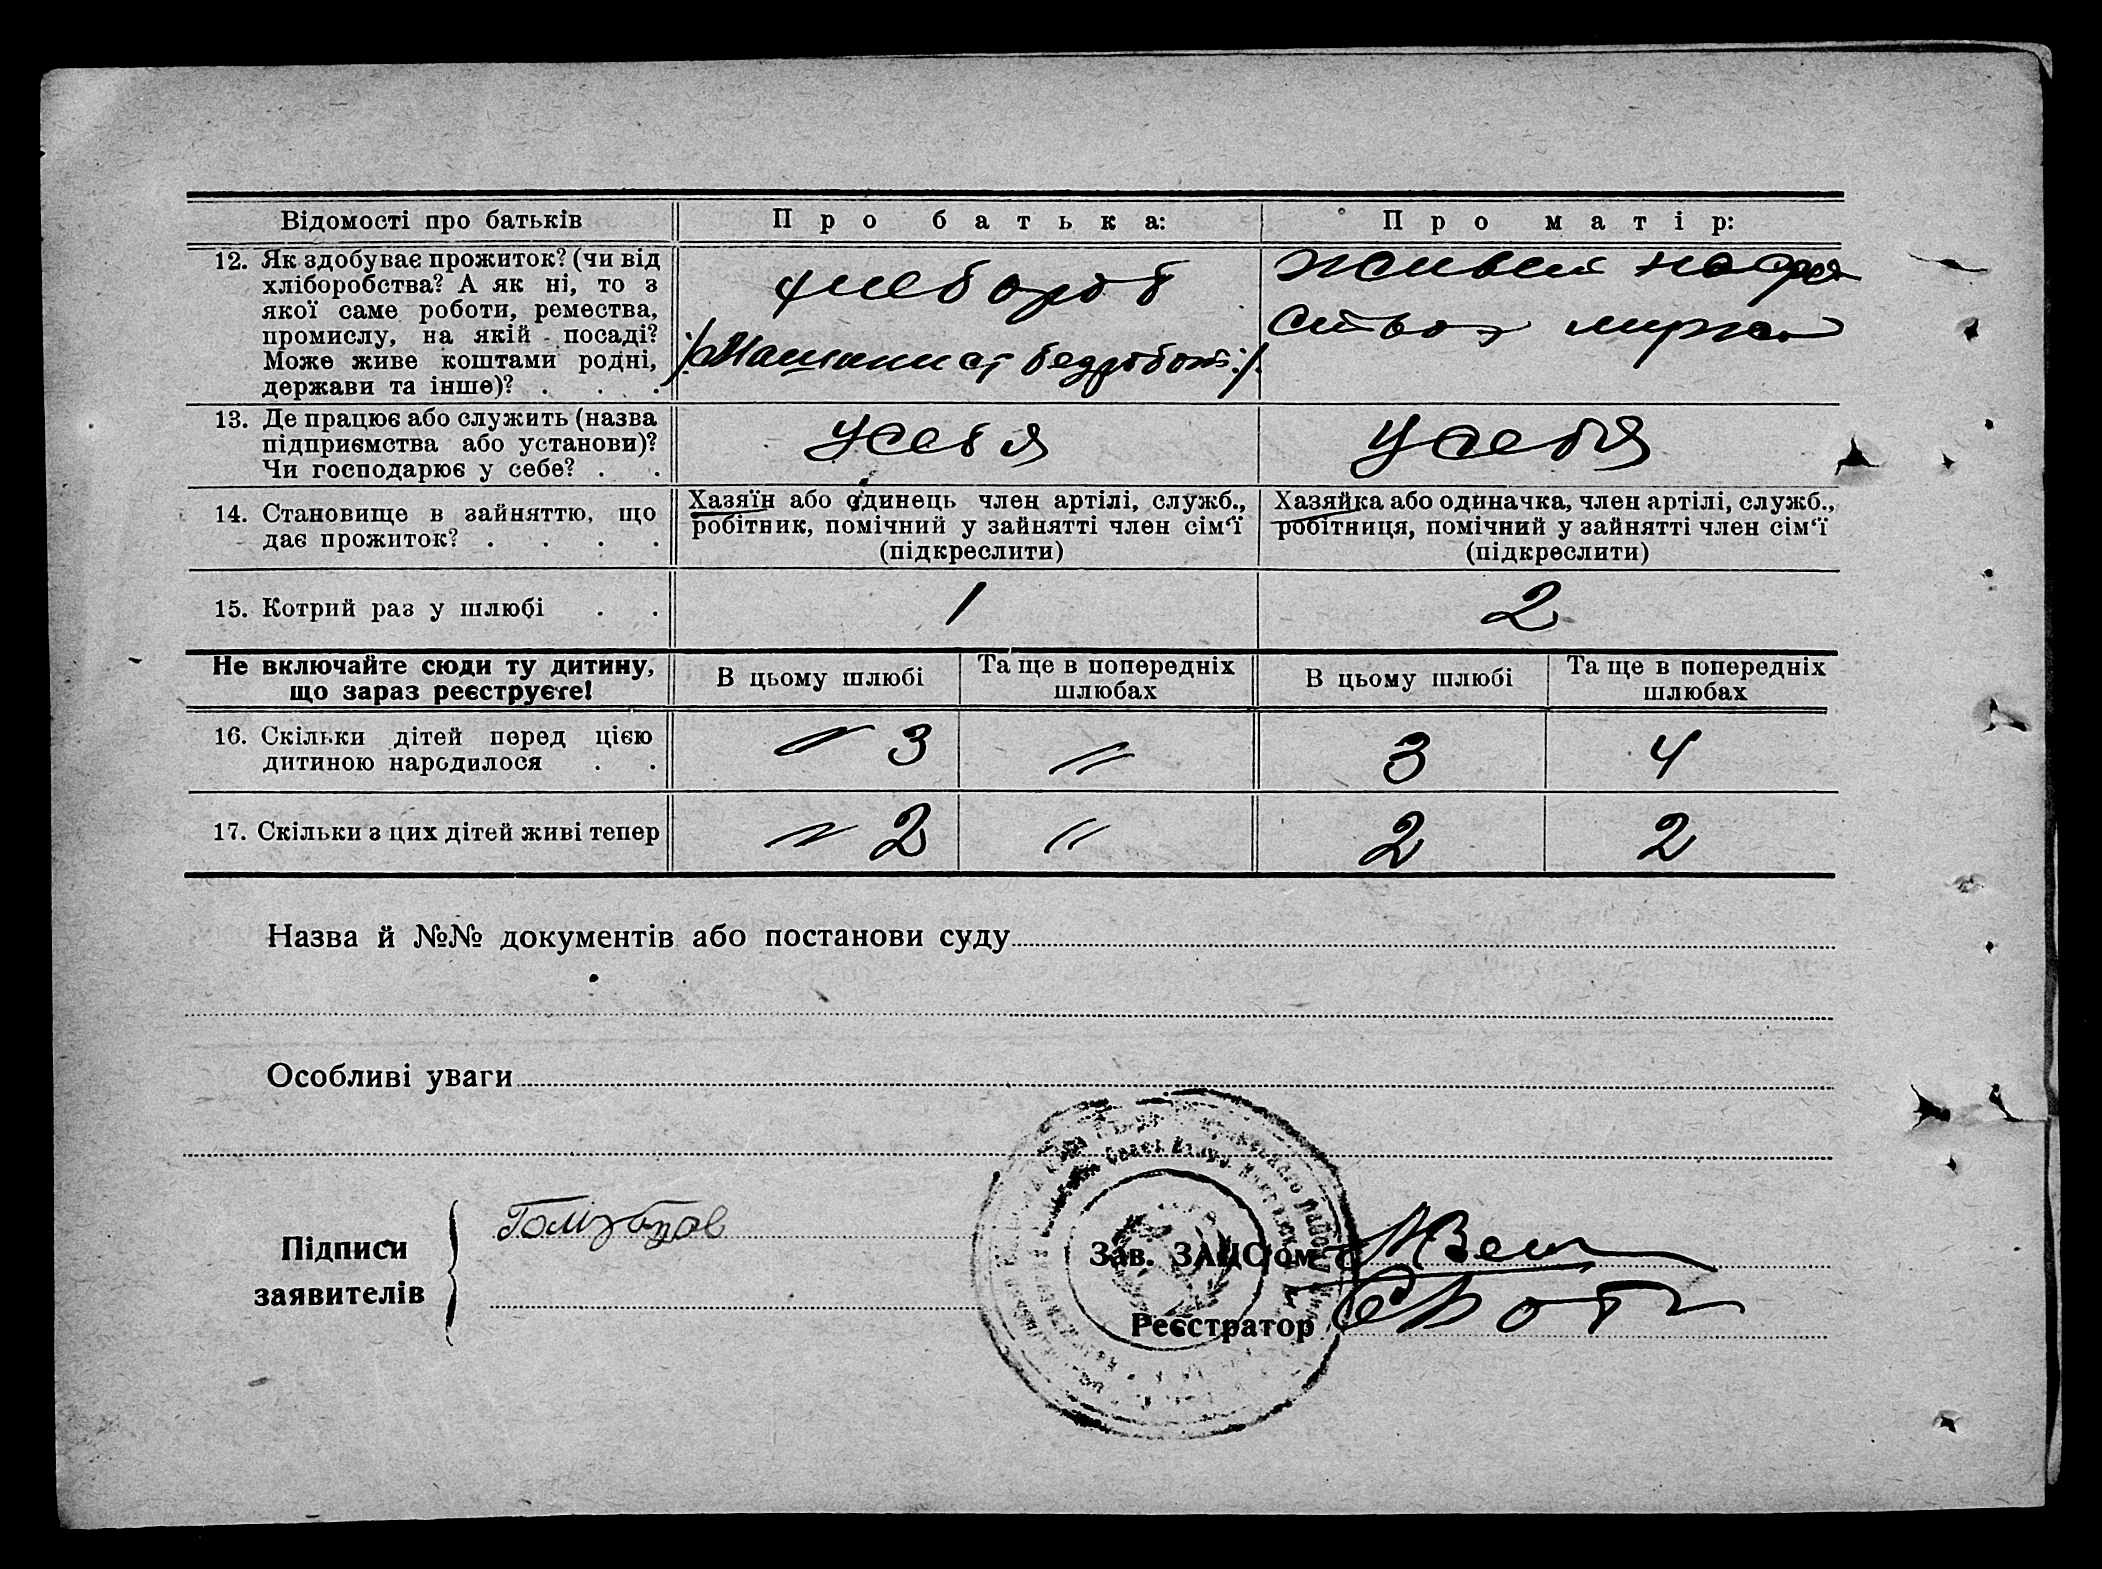 Відомості про батьків
Про батька:
Про матір:
12. Як здобуває прожиток? (чи від
хліборобства? А як ні, то з
якої саме роботи, ремества,
промислу, на якій посаді?
Може живе коштами родні,
держави та інше)? . . .
хлебороб
/Машинист безработ:/
живет на
мужа
13. Де працює або служить (назва
підприємства або установи)?
Чи господарює у себе? . .
У себя
У себя
14. Становище в зайняттю, що
дає прожиток? . . . .
Хазяїн або одинець член артілі, служб.,
робітник, помічний у зайнятті член сім'ї
(підкреслити)
Хазяйка або одиначка, член артілі, служб.,
робітниця, помічний у зайнятті член сім'ї
(підкреслити)
15. Котрий раз у шлюбі . .
1
2
Не включайте сюди ту дитину,
що зараз реєструєте!
В цьому шлюбі
Та ще в попередніх
шлюбах
В цьому шлюбі
Та ще в попередніх
шлюбах
16. Скільки дітей перед цією
дитиною народилося . .
3
〃
3
4
17. Скільки з цих дітей живі тепер
2
〃
2
2
Назва й №№ документів або постанови суду
Особливі уваги
Підписи
заявителів
Зав. ЗАЦС'ом
Реєстратор